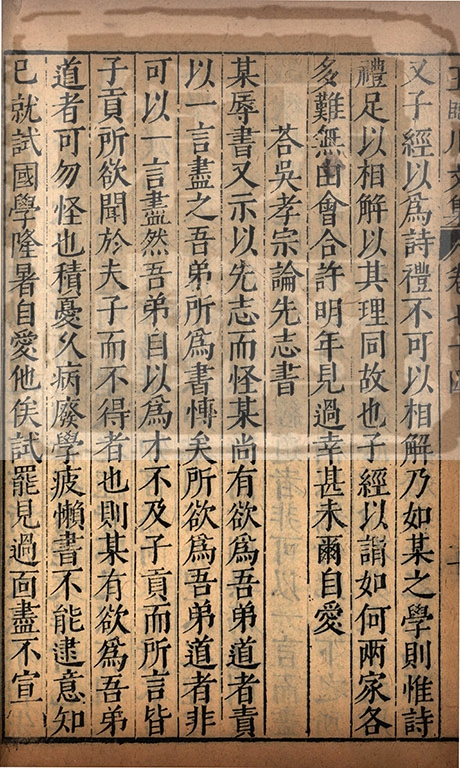 王臨川文集 卷七十四
又子經以為詩禮不可以相解乃如某之學則惟詩
禮足以相解以其理同故也子經以謂如何兩家各
多難無由會合許明年見過幸甚未爾自愛
荅吳孝宗論先志書
某辱書又示以先志而怪某尚有欲為吾弟道者責
以一言盡之吾弟所為書博矣所欲為吾弟道者非
可以一言盡然吾弟自以為才不及子貢而所言皆
子貢所欲聞於夫子而不得者也則某有欲為吾弟
道者可勿怪也積憂久病廢學疲懶書不能逮意知
已就試國學隆暑自愛他俟試罷見過面盡不宣